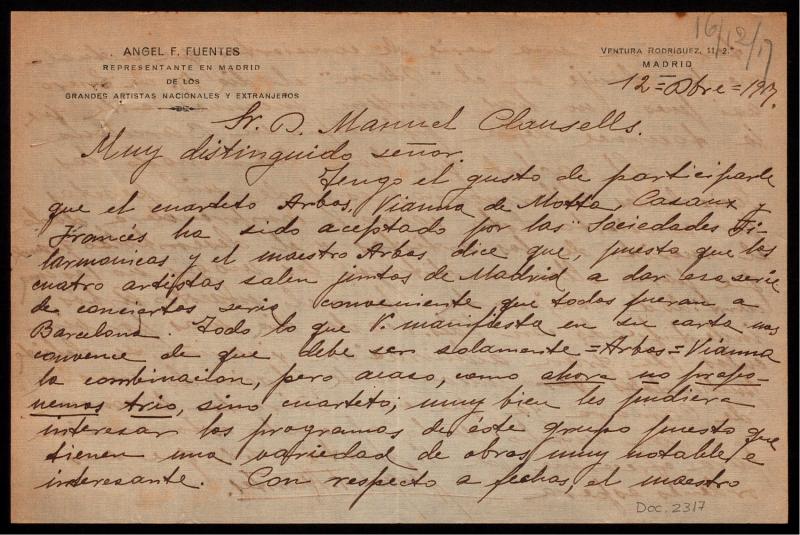 16/12/17
ANGEL F. FUENTES
REPRESENTANTE EN MADRID
DE LOS
GRANDES ARTISTAS NACIONALES Y EXTRANJEROS
VENTURA RODRIGUEZ, 11, 2.º
MADRID
12=Dbre=1917.
Sr. D. Manuel Clausells.
Muy distinguido señor.
Tengo el gusto de participarle
que el cuarteto Arbos, Vianna de Motta, Casaux y
Francés ha sido aceptado por las Sociedades Fi-
larmonicas y el maestro Arbos dice que, puesto que los
cuatro artistas salen juntos de Madrid a dar esa serie
de conciertos seria conveniente que todos fueran a
Barcelona. Todo lo que V. manifiesta en su carta nos
convence de que debe ser solamente =Arbos=Vianna
la combinacion, pero acaso, como ahora no propo-
nemos trio, sino cuarteto; muy bien les pudiera
interesar los programas de éste grupo puesto que
tienen una variedad de obras muy notable e
interesante. Con respecto a fechas, el maestro
Doc. 2317